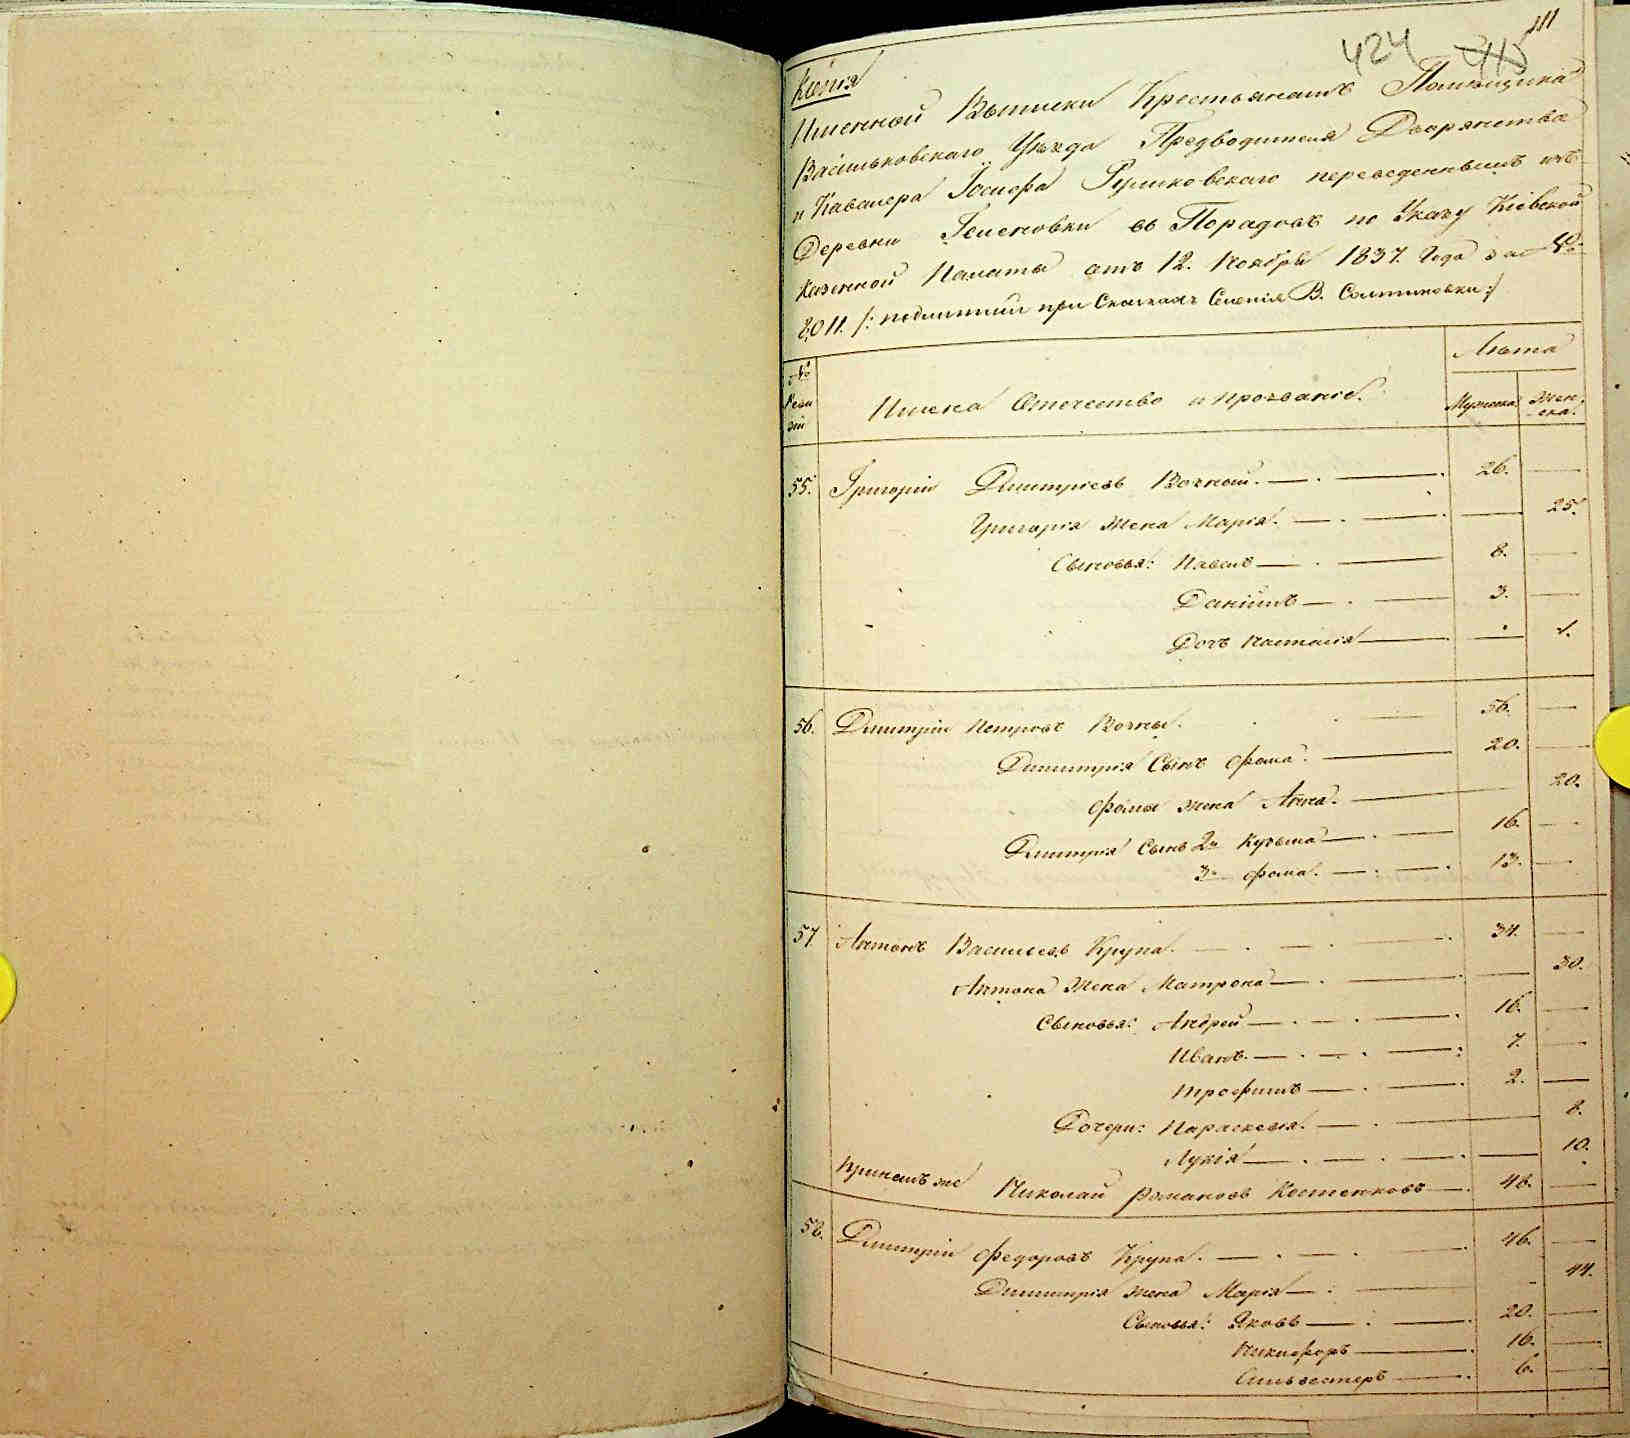 411
424 415
Копія
Именной Выписки Крестьянамъ Помѣщика
Васильковскаго Уѣзда Предводителя Дворянства
и Кавалера Іосифа Руликовскаго переведеннымъ изъ
Деревни Еленовки въ Порадовъ по Указу Кіевской
Казенной Палаты отъ 12. Ноября 1837. Года за №
8,011. /: подлинный при Сказкахъ Селенія В. Солтановки :/
№ Реви зіи
Имена Отчество и прозваніе.
Лѣта
Мужска Жен- ска.
55. Григорій Дмитріевъ Вознай. 26.
Григорія жена Марія. 25.
Сыновья: Павелъ 8.
Даніилъ 3.
Дочь Настасія 1.
56. Дмитрій Петровъ Возны. 56.
Дмитрія Сынъ Фома. 20.
Фомы жена Анна. 20.
Дмитрія Сынъ 2й Кузьма 16.
3й Фома. 13.
57. Антонъ Васильевъ Крупа. 34.
Антона жена Матрона 30.
Сыновья: Андрей 16.
Иванъ. 7.
Трофимъ 2.
Дочери: Параскевія. 8.
Лукія 10.
Николай Романовъ Костенковъ 48.
58. Дмитрій Федоровъ Крупа. 46.
Дмитрія жена Марія 44.
Сыновья: Яковъ 20.
Никифоръ 16.
Сильвестеръ 6.